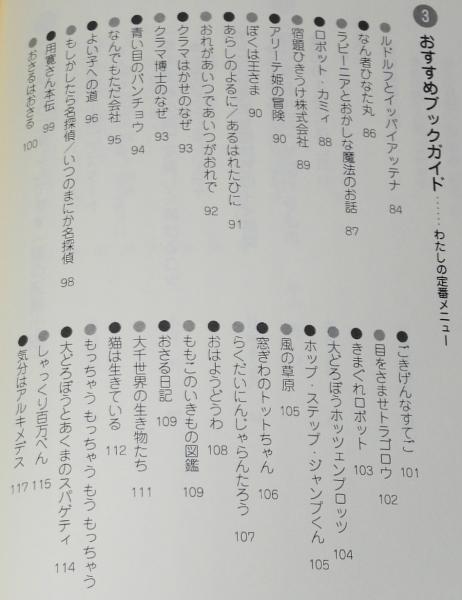 3 おすすめブックガイド……わたしの定番メニュー
ルドルフとイッパイアッテナ 84
なん者ひなた丸 86
ラビーニアとおかしな魔法のお話 87
ロボット・カミィ 88
宿題ひきうけ株式会社 89
アリーテ姫の冒険 90
ぼくは王さま 90
あらしのよるに/あるはれたひに 91
おれがあいつであいつがおれで 92
クラマはかせのなぜ 93
クラマ博士のなぜ 93
青い目のバンチョウ 94
なんでもただ会社 95
よい子への道 96
もしかしたら名探偵/いつのまにか名探偵 98
用寛さん本伝 99
おさるはおさる 100
ごきげんなすてご 101
目をさませトラゴロウ 102
きまぐれロボット 103
大どろぼうホッツェンプロッツ 104
ホップ・ステップ・ジャンプくん 105
風の草原 105
窓ぎわのトットちゃん 106
らくだいにんじゃらんたろう 107
おはようどうわ 108
ももこのいきもの図鑑 109
おさる日記 109
大千世界の生き物たち 111
猫は生きている 112
もっちゃう もっちゃう もう もっちゃう
大どろぼうとあくまのスパゲティ 114
しゃっくり百万べん 115
気分はアルキメデス 117